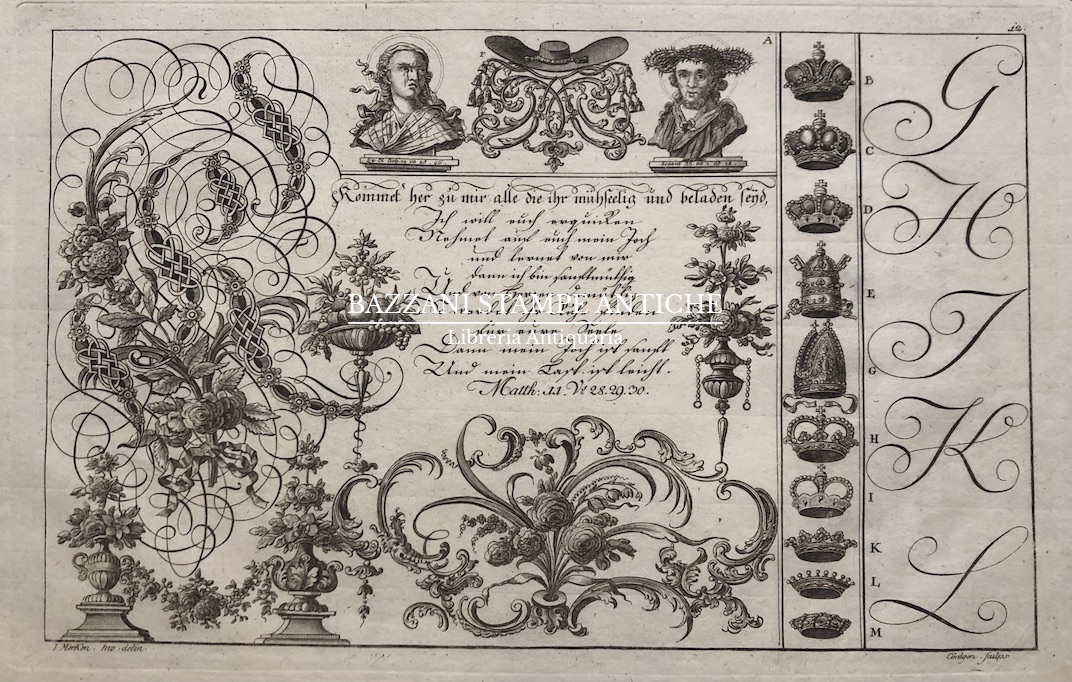 12.
F
A
Kommet her zu mir alle die ihr mühseelig und beladen seyd,
Ich will euch erquicken
Nehmet auf euch mein Joch
und lernet von mir
dann ich bin sanftmüthig
Und von
BAZZANI STAMPE ANTICHE
eure Seele
Libreria Antiquaria
Dann mein Joch ist sanft
Und mein Last ist leicht.
Matth: 11. V: 28.29.30.
B
C
D
E
G
H
I
K
L
M
G
H
I
K
L
I Merken. Inv. delin.
Cöntgen. sculps.